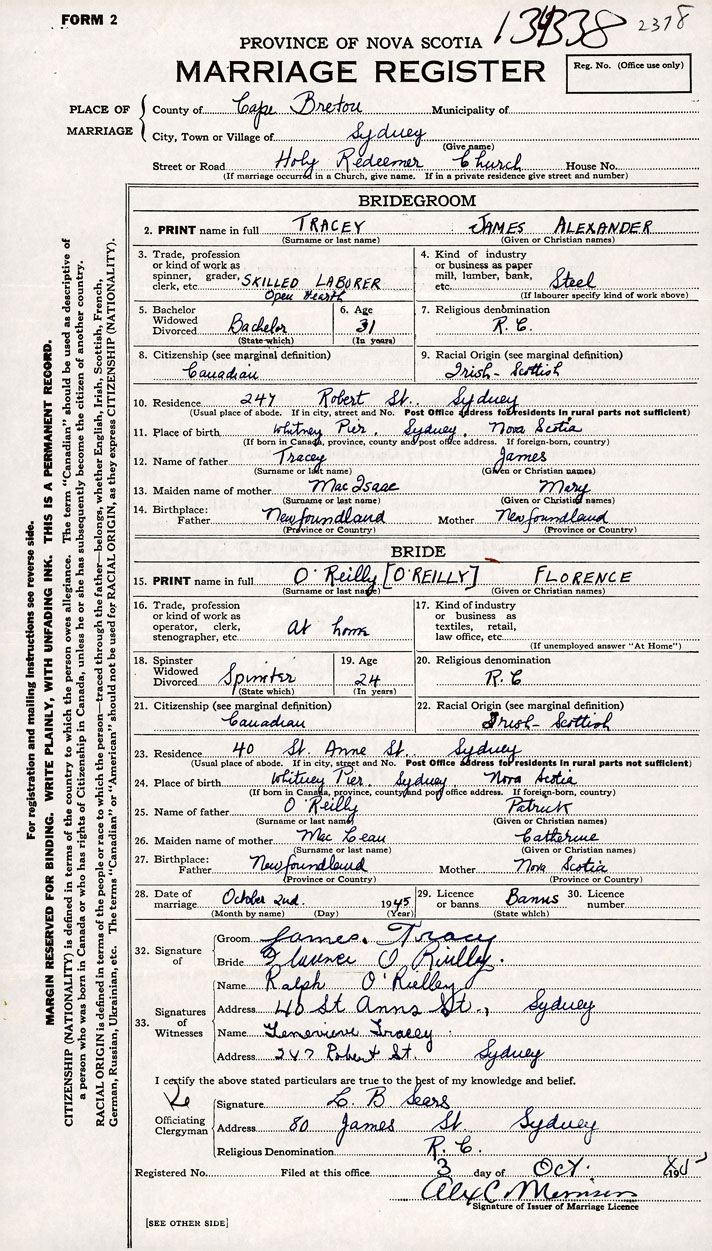 FORM 2
2378
PROVINCE OF NOVA SCOTIA
MARRIAGE REGISTER
Reg. No. (Office use only)
PLACE OF MARRIAGE
County of Cape Breton Municipality of
City, Town or Village of Sydney
(Give name)
Street or Road Holy Redeemer Church House No.
(If marriage occurred in a Church, give name. If in a private residence give street and number)
BRIDEGROOM
2. PRINT name in full TRACEY JAMES ALEXANDER
(Surname or last name) (Given or Christian names)
3. Trade, profession or kind of work as spinner, grader, clerk, etc. SKILLED LABORER Open Hearth
4. Kind of industry or business as paper mill, lumber, bank, etc. Steel
(If labourer specify kind of work above)
5. Bachelor Widowed Divorced Bachelor (State which)
6. Age 31 (In years)
7. Religious denomination R. C.
8. Citizenship (see marginal definition) Canadian
9. Racial Origin (see marginal definition) Irish-Scottish
10. Residence 247 Robert St. Sydney
(Usual place of abode. If in city, street and No. Post Office address for residents in rural parts not sufficient)
11. Place of birth Whitney Pier, Sydney, Nova Scotia
(If born in Canada, province, county and post office address. If foreign-born, country)
12. Name of father Tracey James
(Surname or last name) (Given or Christian names)
13. Maiden name of mother Mac Isaac Mary
(Surname or last name) (Given or Christian names)
14. Birthplace: Father Newfoundland Mother Newfoundland
(Province or Country) (Province or Country)
BRIDE
15. PRINT name in full O'Reilly [O'REILLY] FLORENCE
(Surname or last name) (Given or Christian names)
16. Trade, profession or kind of work as operator, clerk, stenographer, etc. at home
17. Kind of industry or business as textiles, retail, law office, etc.
(If unemployed answer "At Home")
18. Spinster Widowed Divorced Spinster (State which)
19. Age 24 (In years)
20. Religious denomination R. C
21. Citizenship (see marginal definition) Canadian
22. Racial Origin (see marginal definition) Irish-Scottish
23. Residence 40 St. Anne St. Sydney
(Usual place of abode. If in city, street and No. Post Office address for residents in rural parts not sufficient)
24. Place of birth Whitney Pier, Sydney, Nova Scotia
(If born in Canada, province, county and post office address. If foreign-born, country)
25. Name of father O'Reilly Patrick
(Surname or last name) (Given or Christian names)
26. Maiden name of mother Mac Lean Catherine
(Surname or last name) (Given or Christian names)
27. Birthplace: Father Newfoundland Mother Nova Scotia
(Province or Country) (Province or Country)
28. Date of marriage October 2nd. 1945
(Month by name) (Day) (Year)
29. Licence or banns Banns (State which)
30. Licence number
32. Signature of
Groom James. Tracy
Bride Florence O Rielly.
33. Signatures of Witnesses
Name Ralph O'Rielley
Address 40 St Anns St., Sydney
Name Genevieve Tracey
Address 247 Robert St. Sydney
I certify the above stated particulars are true to the best of my knowledge and belief.
Officiating Clergyman
Signature L. B Sears
Address 80 James St Sydney
Religious Denomination R. C.
Registered No. Filed at this office 3 day of Oct. 1945
Signature of Issuer of Marriage Licence
[SEE OTHER SIDE]
For registration and mailing instructions see reverse side.
MARGIN RESERVED FOR BINDING. WRITE PLAINLY, WITH UNFADING INK. THIS IS A PERMANENT RECORD.
CITIZENSHIP (NATIONALITY) is defined in terms of the country to which the person owes allegiance. The term "Canadian" should be used as descriptive of
a person who was born in Canada or who has rights of Citizenship in Canada, unless he or she has subsequently become the citizen of another country.
RACIAL ORIGIN is defined in terms of the people or race to which the person—traced through the father—belongs, whether English, Irish, Scottish, French,
German, Russian, Ukrainian, etc. The terms "Canadian" or "American" should not be used for RACIAL ORIGIN, as they express CITIZENSHIP (NATIONALITY).